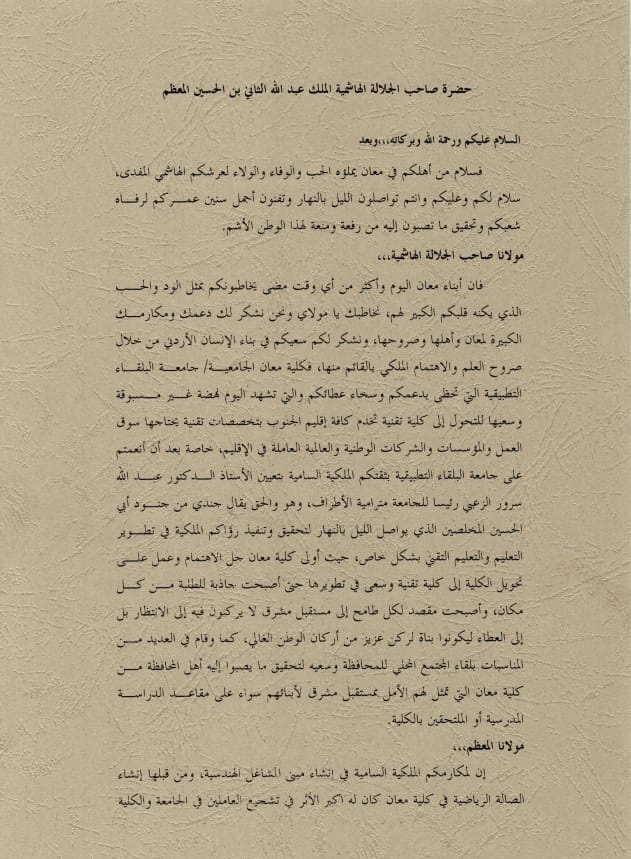 حضرة صاحب الجلالة الهاشمية الملك عبد الله الثاني بن الحسين المعظم
السلام عليكم ورحمة الله وبركاته،،،وبعد
فسلام من أهلكم في معان يملؤه الحب والوفاء والولاء لعرشكم الهاشمي المفدى،
سلام لكم وعليكم وانتم تواصلون الليل بالنهار وتفنون أجمل سنين عمركم لرفاه
شعبكم وتحقيق ما تصبون إليه من رفعة ومنعة لهذا الوطن الأشم.
مولانا صاحب الجلالة الهاشمية،،،
فان أبناء معان اليوم وأكثر من أي وقت مضى يخاطبونكم بمثل الود والحب
الذي يكنه قلبكم الكبير لهم، نخاطبك يا مولاي ونحن نشكر لك دعمك ومكارمك
الكبيرة لمعان وأهلها وصروحها، ونشكر لكم سعيكم في بناء الإنسان الأردني من خلال
صروح العلم والاهتمام الملكي بالقائم منها، فكلية معان الجامعية/ جامعة البلقاء
التطبيقية التي تحظى بدعمكم وسخاء عطائكم والتي تشهد اليوم نهضة غير مسبوقة
وسعيها للتحول إلى كلية تقنية تخدم كافة إقليم الجنوب بتخصصات تقنية يحتاجها سوق
العمل والمؤسسات والشركات الوطنية والعالمية العاملة في الإقليم، خاصة بعد أن أنعمتم
على جامعة البلقاء التطبيقية بثقتكم الملكية السامية بتعيين الأستاذ الدكتور عبد الله
سرور الزعبي رئيسا للجامعة مترامية الأطراف، وهو والحق يقال جندي من جنود أبي
الحسين المخلصين الذي يواصل الليل بالنهار لتحقيق وتنفيذ رؤاكم الملكية في تطوير
التعليم والتعليم التقني بشكل خاص، حيث أولى كلية معان جل الاهتمام وعمل على
تحويل الكلية إلى كلية تقنية وسعى في تطويرها حتى أصبحت جاذبة للطلبة من كل
مكان، وأصبحت مقصد لكل طامح إلى مستقبل مشرق لا يركنون فيه إلى الانتظار بل
إلى العطاء ليكونوا بناة لركن عزيز من أركان الوطن الغالي، كما وقام في العديد من
المناسبات بلقاء المجتمع المحلي للمحافظة وسعيه لتحقيق ما يصبوا إليه أهل المحافظة من
كلية معان التي تمثل لهم الأمل بمستقبل مشرق لأبنائهم سواء على مقاعد الدراسة
المدرسية أو الملتحقين بالكلية.
مولانا المعظم،،،
إن لمكارمكم الملكية السامية في إنشاء مبنى المشاغل الهندسية، ومن قبلها إنشاء
الصالة الرياضية في كلية معان كان له اكبر الأثر في تشجيع العاملين في الجامعة والكلية